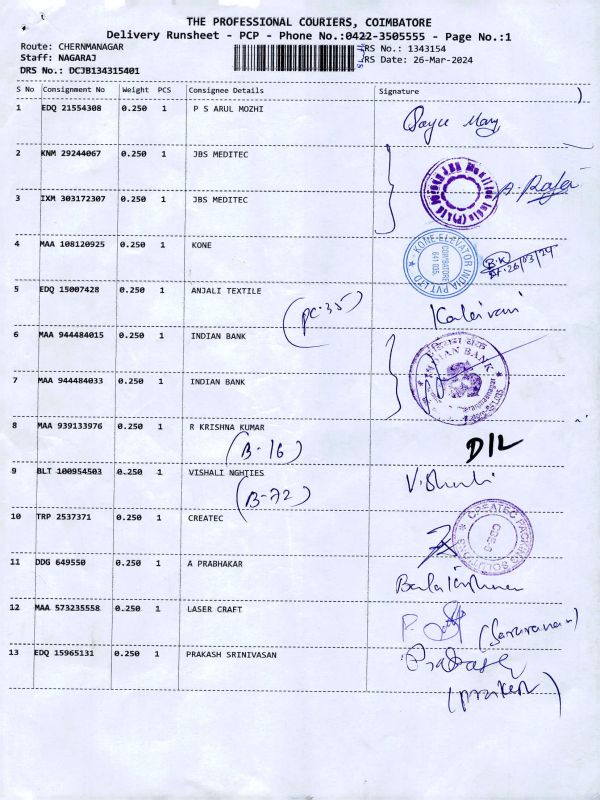 THE PROFESSIONAL COURIERS, COIMBATORE
Delivery Runsheet - PCP - Phone No.:0422-3505555 - Page No.:1
Route: CHERNMANAGAR
RS No.: 1343154
Staff: NAGARAJ
RS Date: 26-Mar-2024
DRS No.: DCJB134315401
S No Consignment No Weight PCS Consignee Details Signature
1 EDQ 21554308 0.250 1 P S ARUL MOZHI
2 KNM 29244067 0.250 1 JBS MEDITEC
3 IXM 303172307 0.250 1 JBS MEDITEC
4 MAA 108120925 0.250 1 KONE KONE ELEVATOR INDIA PVT LTD COIMBATORE 641 035 B.K 26/03/24
5 EDQ 15007428 0.250 1 ANJALI TEXTILE Kalaivani
(PC-35)
6 MAA 944484015 0.250 1 INDIAN BANK INDIAN BANK
7 MAA 944484033 0.250 1 INDIAN BANK
8 MAA 939133976 0.250 1 R KRISHNA KUMAR D/L
(B-16)
9 BLT 100954503 0.250 1 VISHALI NGHTIES
(B-72)
10 TRP 2537371 0.250 1 CREATEC CREATEC PACKING SOLUTIONS
11 DDG 649550 0.250 1 A PRABHAKAR
12 MAA 573235558 0.250 1 LASER CRAFT (Saravanan)
13 EDQ 15965131 0.250 1 PRAKASH SRINIVASAN